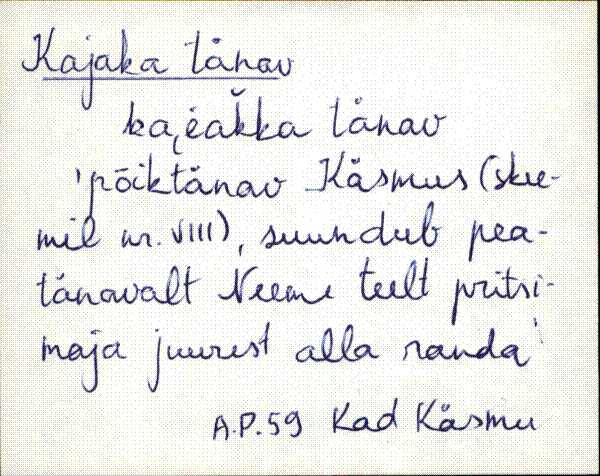 Kajaka tänav
ka̭èak̆ka tänav
'põiktänav Käsmus (ske-
mil nr. VIII), suundub pea-
tänavalt Neeme teelt pritsi-
maja juurest alla randa'
A.P.59 Kad Käsmu